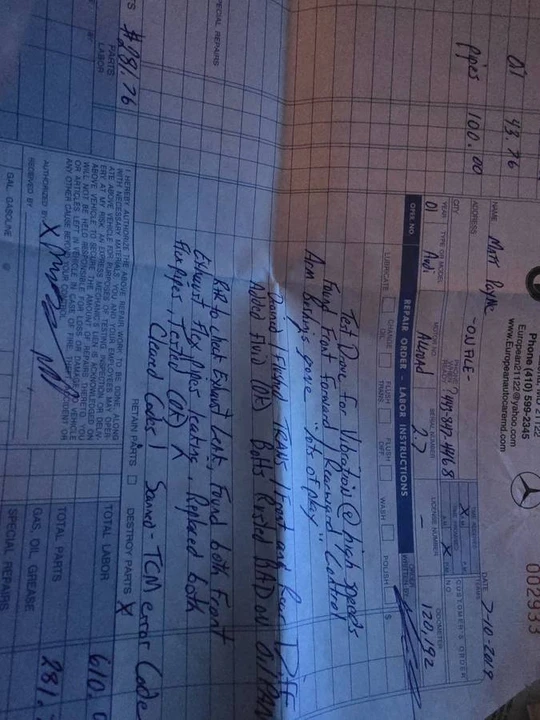 21122
Phone (410) 599-2345
European21122@yahoo.com
www.Europeanautocaremd.com
002933
DATE 7-10-2019
NAME Matt Payne
ADDRESS -ONFILE-
CITY
CUSTOMER'S ORDER NO
YEAR TYPE OR MODEL MOTOR NO. SERIAL NUMBER LICENSE NUMBER ODOMETER
01 Audi Allroad 2.7 120,192
OPER. NO. REPAIR ORDER - LABOR INSTRUCTIONS
LUBRICATE CHANGE OIL FLUSH TRANS. FLUSH DIFF. WASH POLISH
Test Drove for Vibration @ high speeds
Found Front Forward Rearward Control
Arm Bushings gone "lots of play"
Drained, Flushed TRANS, Front and Rear Diff
Added Fluid (OK) Bolts Rusted BAD on
R&R to check Exhaust Leak, Found both Front
Exhaust Flex pipes leaking, Replaced both
flex pipes, Tested (OK) X
Cleared Codes Scanned - TCM error Code
01 43.76
pipes 100.00
SPECIAL REPAIRS
PARTS
LABOR
RETAIN PARTS DESTROY PARTS X
I HEREBY AUTHORIZE THE ABOVE REPAIR WORK TO BE DONE ALONG
WITH NECESSARY MATERIALS. YOU AND YOUR EMPLOYEES MAY OPER-
ATE ABOVE VEHICLE FOR PURPOSES OF TESTING, INSPECTION OR DELIV-
ERY AT MY RISK. AN EXPRESS MECHANIC'S LIEN IS ACKNOWLEDGED ON
ABOVE VEHICLE TO SECURE THE AMOUNT OF REPAIRS THERETO. YOU
WILL NOT BE HELD RESPONSIBLE FOR LOSS OR DAMAGE TO VEHICLE
OR ARTICLES LEFT IN VEHICLE IN CASE OF FIRE, THEFT, ACCIDENT OR
ANY OTHER CAUSE BEYOND YOUR CONTROL.
AUTHORIZED BY X
RECEIVED BY
TOTAL LABOR 610.
TOTAL PARTS 281.
GAS, OIL, GREASE
SPECIAL REPAIRS
GAL. GASOLINE @